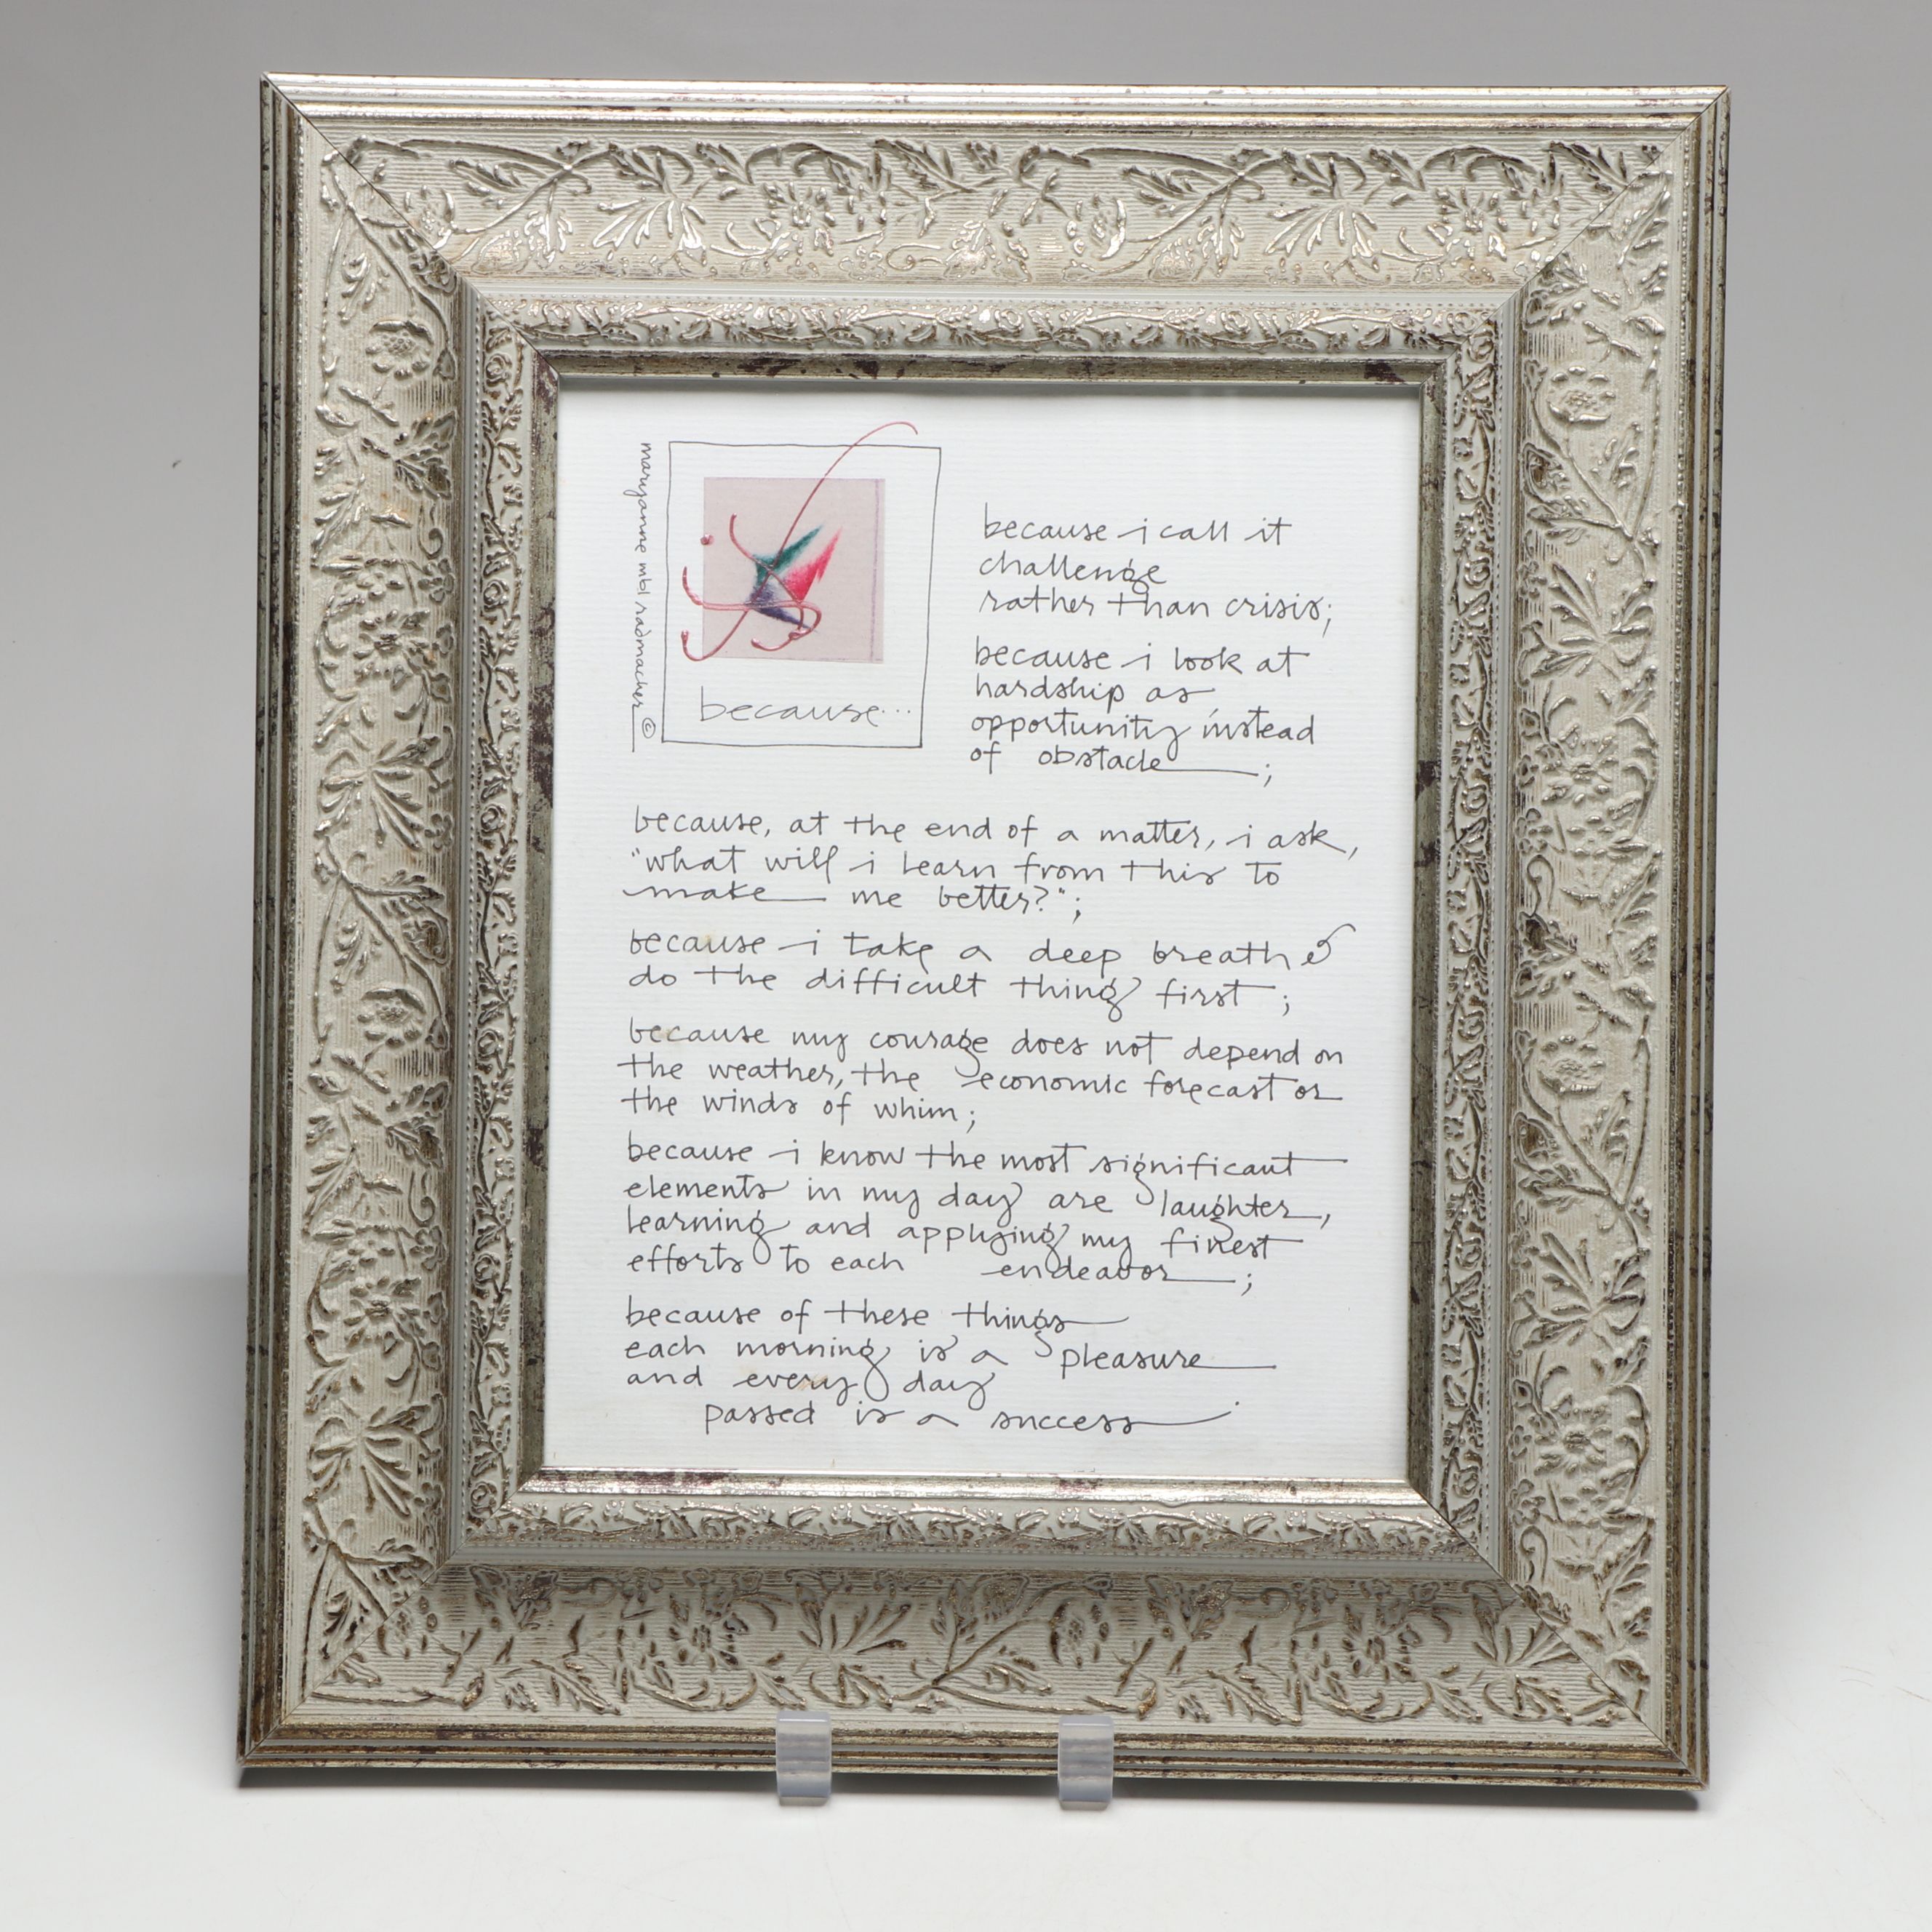 maryanne mbl radmacher ©
because...
because i call it
challenge
rather than crisis;
because i look at
hardship as
opportunity instead
of obstacle;
because, at the end of a matter, i ask,
"what will i learn from this to
make me better?";
because i take a deep breath &
do the difficult thing first;
because my courage does not depend on
the weather, the economic forecast or
the winds of whim;
because i know the most significant
elements in my day are laughter,
learning and applying my finest
efforts to each endeavor;
because of these things
each morning is a pleasure
and every day
passed is a success.